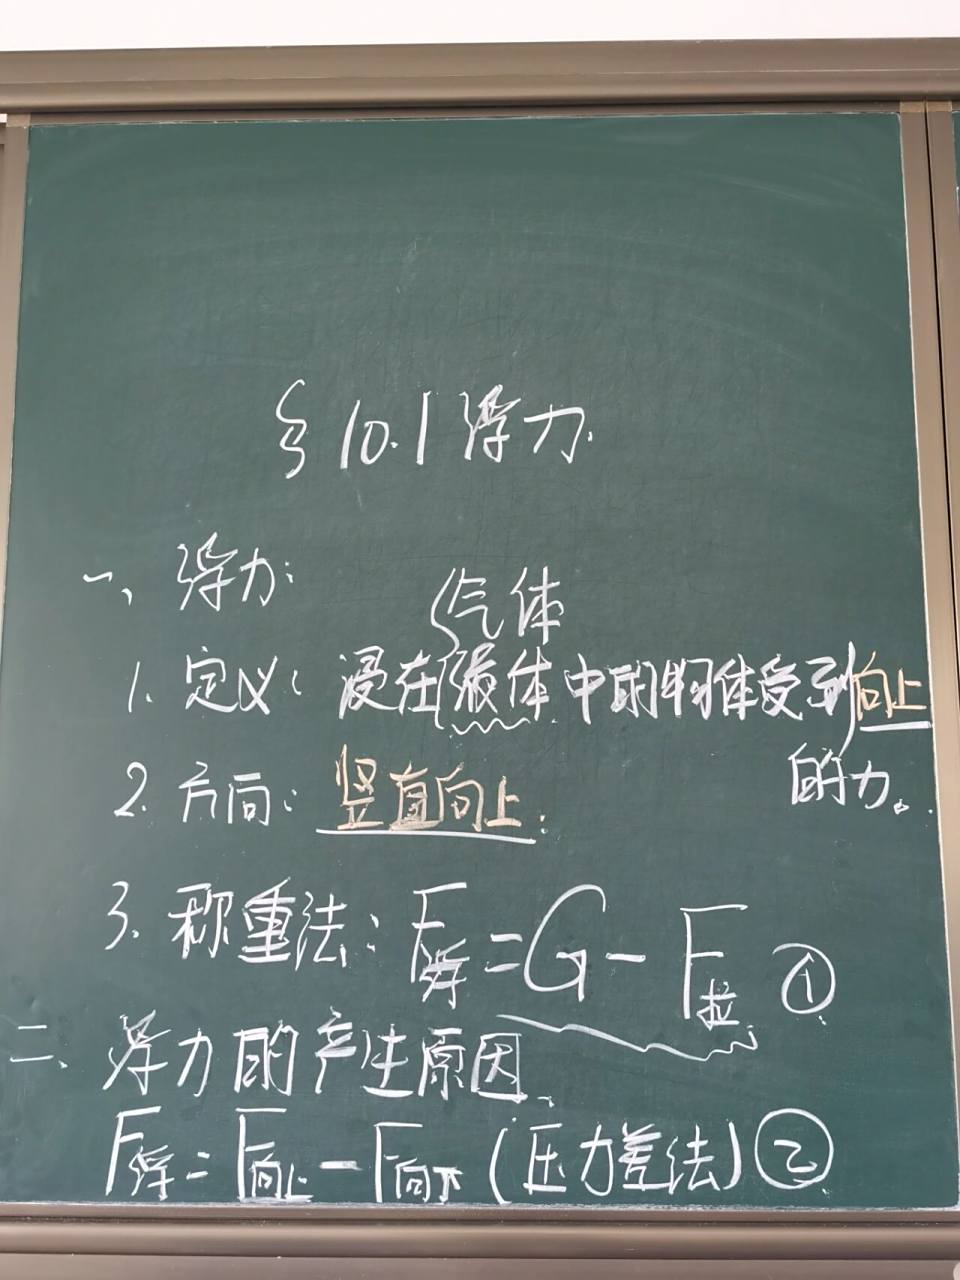 §10.1 浮力.
一、浮力:
气体
1. 定义: 浸在液体中的物体受到向上
的力。
2. 方向: 竖直向上.
3. 称重法: F浮=G-F拉 ①
二、浮力的产生原因.
F浮=F向上-F向下(压力差法)②